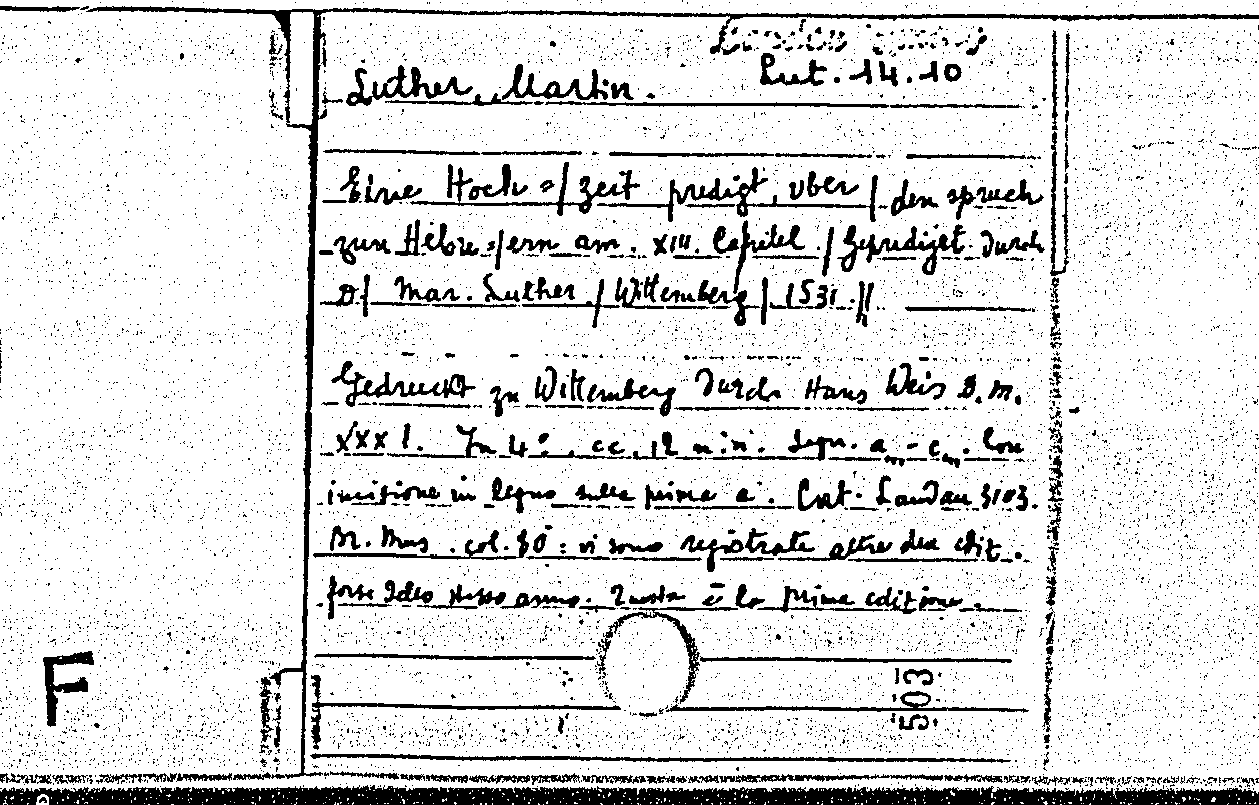 Landau Finaly
Lut. 14.10
Luther, Martin.
Eine Hoch=/zeit predigt, vber / den spruch
zun Hebre=/ern am. XIII. Capitel. / Gepredigt durch
D/ Mar. Luther / Wittemberg / 1531.//
Gedruckt zu Wittemberg durch Hans Weis D. M.
XXXI. In 4°. cc. 12 n. n. Segn. a - c . Con
incisione in legno sulla prima c. Cat. Landau 3103.
Br. Mus. col. 80: vi sono registrate altre due edit.
forse dello stesso anno. Questa è la prima edizione.
503
F